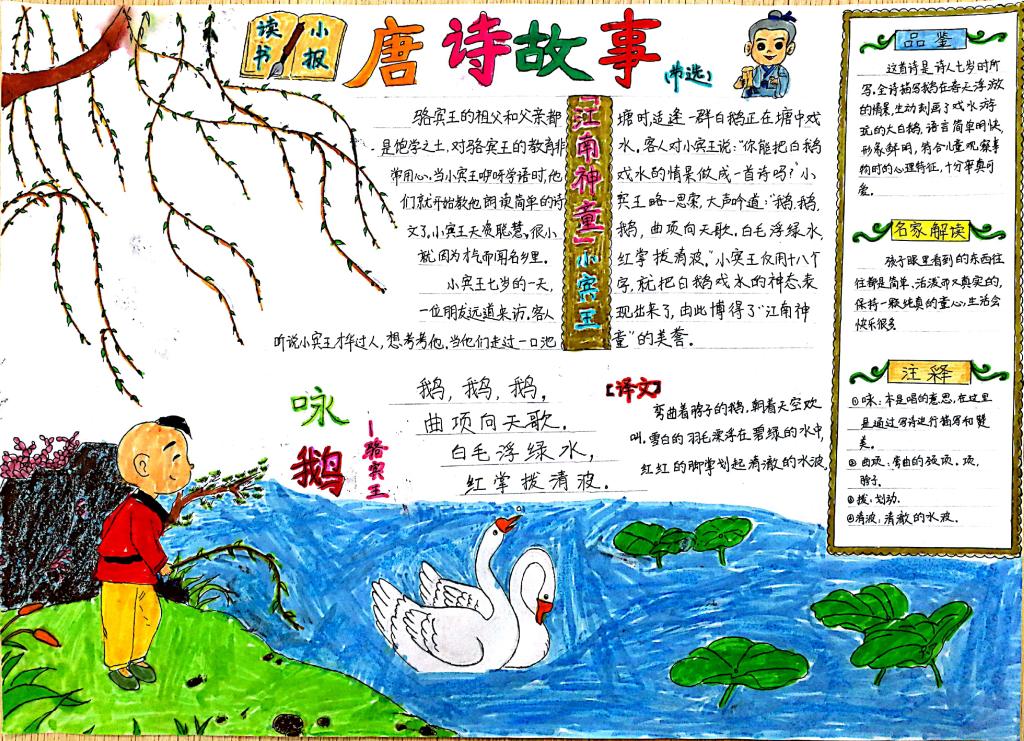 读书
小报
唐诗故事
(节选)
骆宾王的祖父和父亲都
是饱学之士,对骆宾王的教育非
常用心。当小宾王咿呀学语时,他
们就开始教他朗读简单的诗
文了。小宾王天资聪慧,很小
就因为才气而闻名乡里。
小宾王七岁的一天,
一位朋友远道来访。客人
听说小宾王才华过人,想考考他。当他们走过一口池
江南神童
小宾王
塘时适逢一群白鹅正在塘中戏
水。客人对小宾王说:“你能把白鹅
戏水的情景做成一首诗吗?”小
宾王略一思索,大声吟道:“鹅,鹅,
鹅,曲项向天歌。白毛浮绿水,
红掌拨清波。”小宾王仅用十八个
字,就把白鹅戏水的神态表
现出来了,由此博得了“江南神
童”的美誉。
咏鹅
—骆宾王
鹅,鹅,鹅,
曲项向天歌。
白毛浮绿水,
红掌拨清波。
【译文】
弯曲着脖子的鹅,朝着天空欢
叫,雪白的羽毛漂浮在碧绿的水中,
红红的脚掌划起清澈的水波。
品鉴
这首诗是诗人七岁时所
写,全诗描写鹅在春天浮波
的情景,生动刻画了戏水游
玩的大白鹅,语言简单明快,
形象鲜明,符合儿童观察事
物时的心理特征,十分率真可
爱。
名家解读
孩子眼里看到的东西往
往都是简单、活泼而又真实的,
保持一颗纯真的童心,生活会
快乐很多
注释
①咏:本是唱的意思,在这里
是通过写诗进行描写和赞
美。
②曲项:弯曲的颈项。项,
脖子。
③拨:划动。
④清波:清澈的水波。